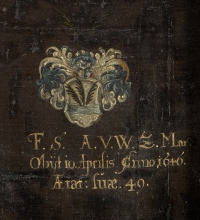 F. S. A. V. W. Z. Mar
Obijt 10. Aprilis Anno 1646.
Ætat: suæ. 49.